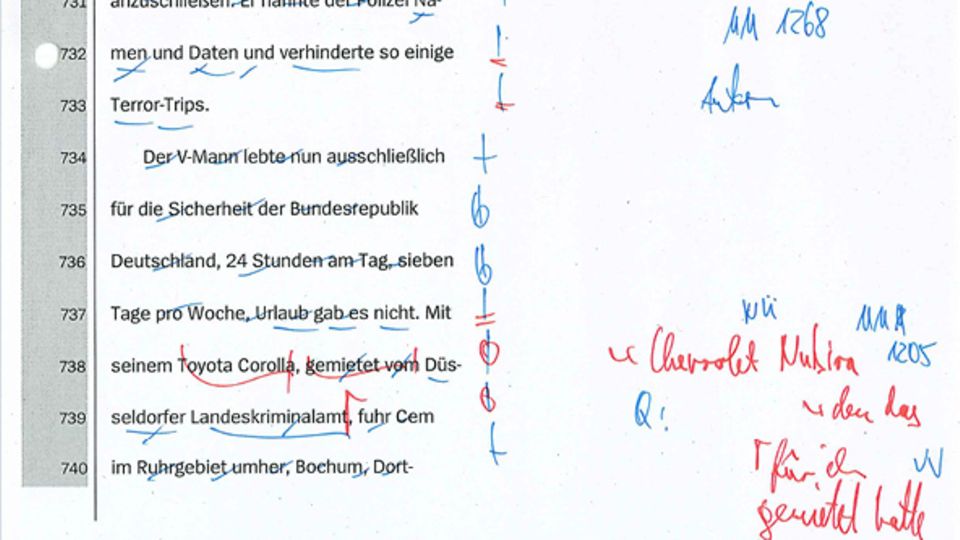 731 anzuschließen. Er nannte der Polizei Na-
732 men und Daten und verhinderte so einige
733 Terror-Trips.
734 Der V-Mann lebte nun ausschließlich
735 für die Sicherheit der Bundesrepublik
736 Deutschland, 24 Stunden am Tag, sieben
737 Tage pro Woche, Urlaub gab es nicht. Mit
738 seinem Toyota Corolla, gemietet vom Düs-
739 seldorfer Landeskriminalamt, fuhr Cem
740 im Ruhrgebiet umher, Bochum, Dort-
1268
Chevrolet Nubira
1205
Q:
den das
für ihn
gemietet hatte